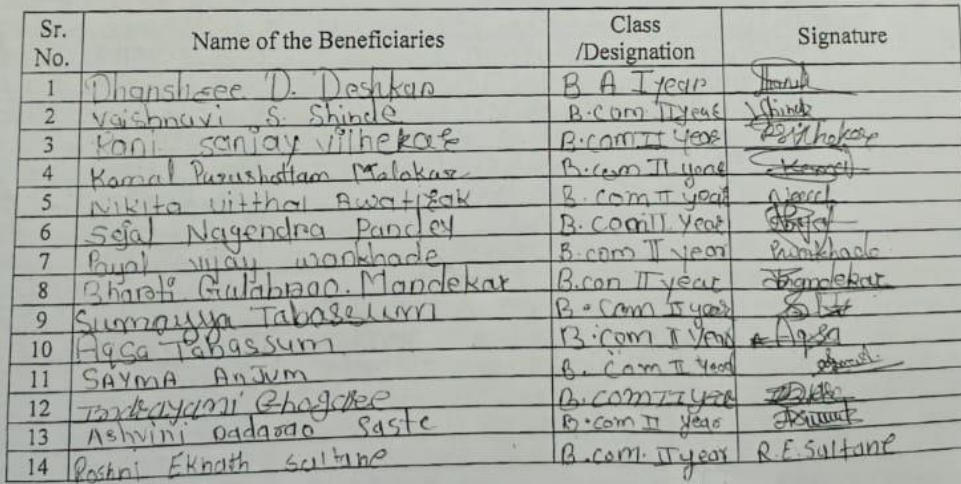 Sr. No. Name of the Beneficiaries Class /Designation Signature
1 Dhanshree D. Deshkar B A I year
2 Vaishnavi S. Shinde B.com II year VShinde
3 Rani sanjay vilhekar B.com II year RSVilhekar
4 Kamal Purushottam Malokar B.com II year
5 Nikita vitthal Awatirak B.com II year
6 Sejal Nagendra Pandey B.com II year Sejal
7 Payal vijay wankhade B.com II year Pwankhade
8 Bharati Gulabrao. Mandekar B.con II year Bmandekar
9 Sumayya Tabassum B.com II year
10 Aqsa Tabassum B.com II year Aqsa
11 SAYMA ANJUM B. Com II year
12 Indrayani Ghogare B.com II year
13 Ashvini Dadarao Saste B.com II year
14 Roshni Eknath sultane B.com. II year R.E.Sultane